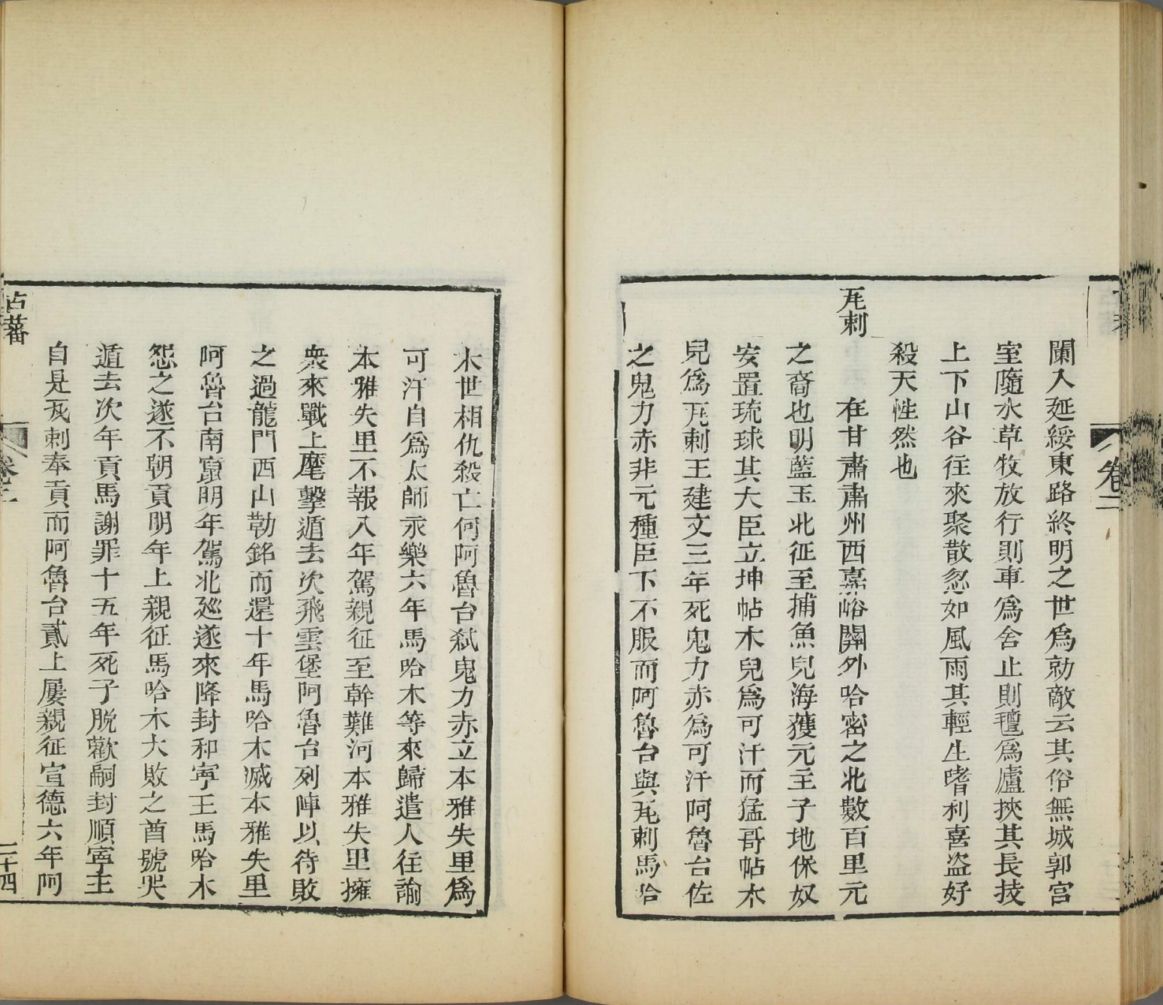 卷二
闌入延綏東路終明之世爲勍敵云其俗無城郭宮
室隨水草牧放行則車爲舍止則氊爲廬挾其長技
上下山谷往來聚散忽如風雨其輕生嗜利喜盗好
殺天性然也
瓦剌　在甘肅肅州西嘉峪關外哈密之北數百里元
之裔也明藍玉北征至捕魚兒海獲元主子地保奴
安置琉球其大臣立坤帖木兒爲可汗而猛哥帖木
兒爲瓦剌王建文三年死鬼力赤爲可汗阿魯台佐
之鬼力赤非元種臣下不服而阿魯台與瓦剌馬哈
木世相仇殺亡何阿魯台弑鬼力赤立本雅失里爲
可汗自爲太師永樂六年馬哈木等來歸遣人往諭
本雅失里不報八年駕親征至幹難河本雅失里擁
衆來戰上麾擊遁去次飛雲堡阿魯台列陣以待敗
之過龍門西山勒銘而還十年馬哈木滅本雅失里
阿魯台南竄明年駕北廵遂來降封和寧王馬哈木
怨之遂不朝貢明年上親征馬哈木大敗之酋號哭
遁去次年貢馬謝罪十五年死子脱歡嗣封順寧王
自是瓦剌奉貢而阿魯台貳上屢親征宣德六年阿
占蕃
卷二
二十四